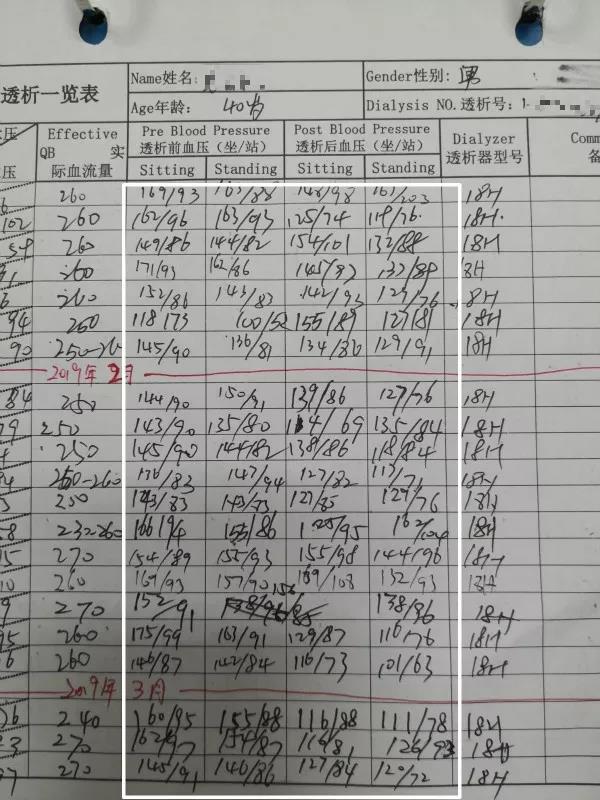 Name姓名: Gender性别: 男
透析一览表
Age年龄: 40岁 Dialysis NO.透析号: 1-
压 Effective Pre Blood Pressure Post Blood Pressure Dialyzer Comm
QB 实 透析前血压（坐/站） 透析后血压（坐/站） 透析器型号 备
压 际血流量 Sitting Standing Sitting Standing
260 169/93 163/88 148/98 18H
102 260 162/96 163/93 125/74 119/76 18H
54 260 149/86 144/82 154/101 132/88 18H
260 171/93 162/86 145/83 132/88 18H
260 152/86 143/83 142/93 123/76 18H
94 250 118/73 100/52 155/89 127/81 18H
90 250-260 145/90 136/81 134/86 129/91 18H
2019年2月
84 250 144/90 150/91 139/86 127/76 18H
79 250 143/90 135/80 114/69 135/84 18H
250 145/90 144/82 138/86 118/84 18H
84 250-260 136/83 147/94 127/82 113/71 18H
250 143/83 143/73 127/85 129/76 18H
58 232-260 166/94 155/86 125/95 162/104 18H
15 270 154/89 155/93 155/98 144/96 18H
10 260 169/93 157/90 169/103 132/93 18H
9 270 152/91 138/86 18H
95 260 175/99 163/91 129/87 116/76 18H
6 260 146/87 142/84 116/73 101/63 18H
2019年 3月
26 240 160/95 155/88 116/88 111/78 18H
23 270 162/97 154/87 116/81 126/93 18H
270 145/91 146/86 127/84 120/72 18H